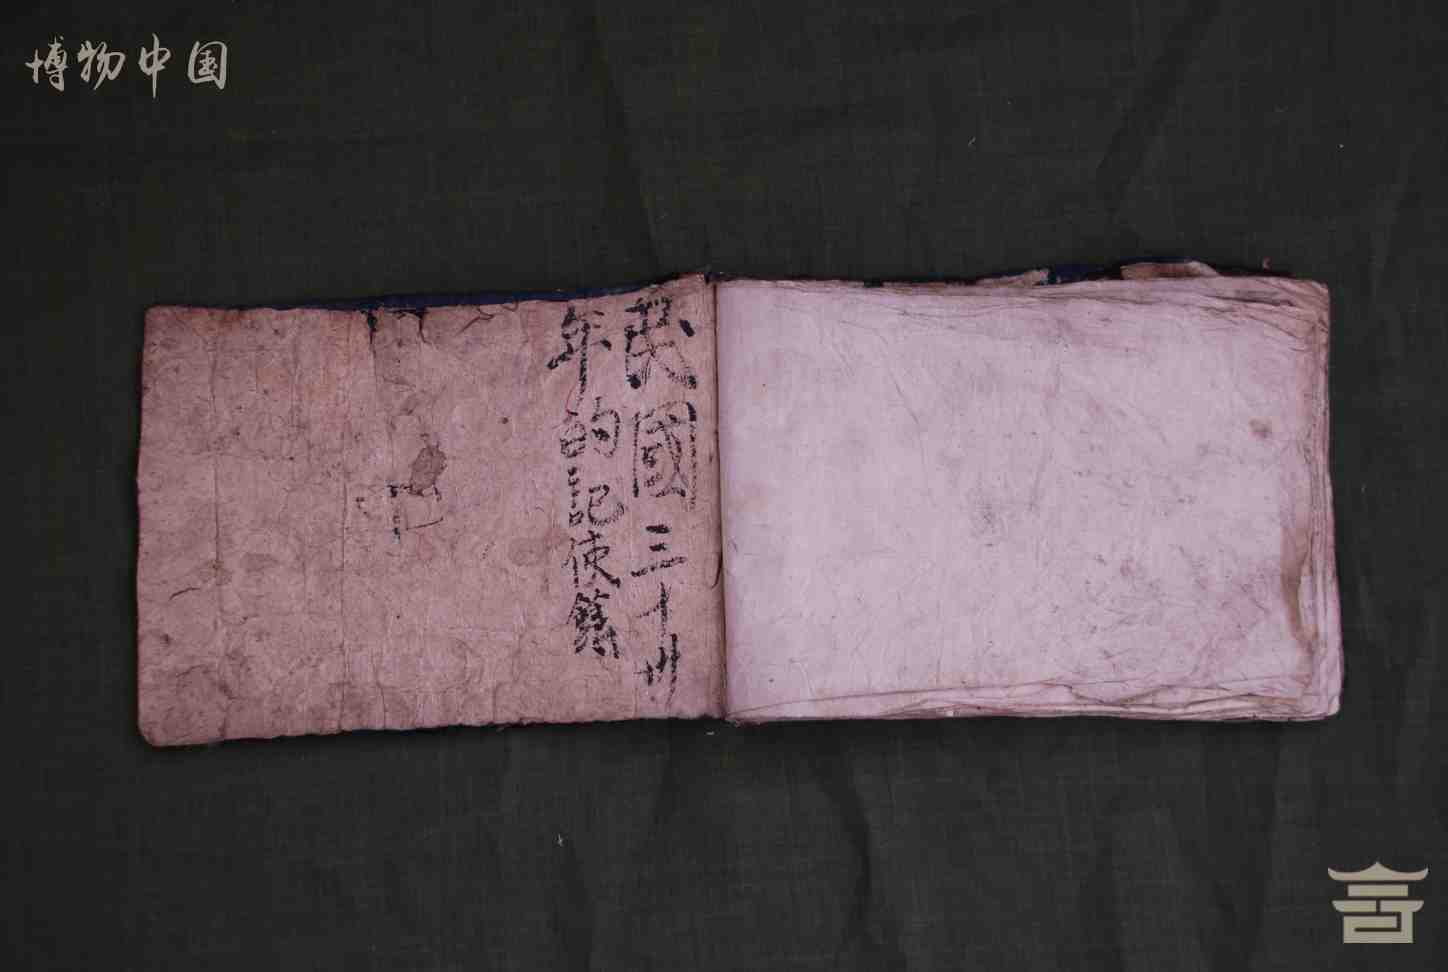 博物中国
民國三十卅
年的記使簿